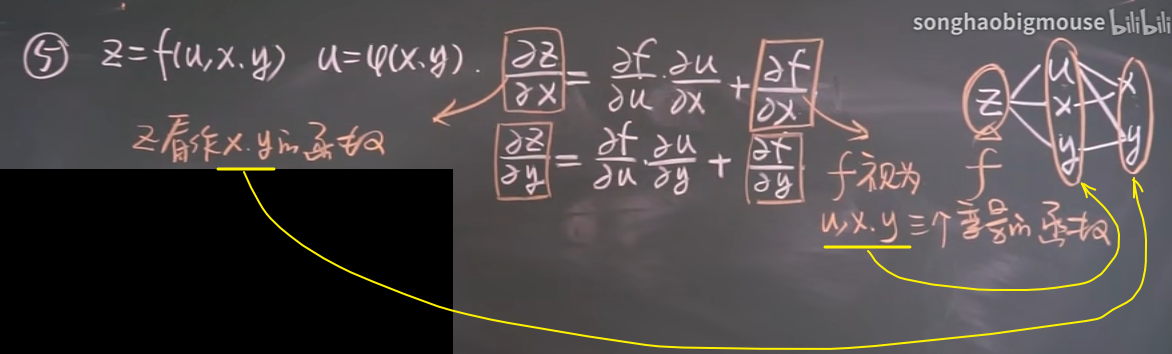 songhaobigmouse bilibili
⑤ z=f(u,x.y) u=φ(x.y). ∂z/∂x = ∂f/∂u·∂u/∂x + ∂f/∂x
z看作x.y的函数
∂z/∂y = ∂f/∂u·∂u/∂y + ∂f/∂y
f视为
u,x.y三个变量的函数
z u x
x y
y
f